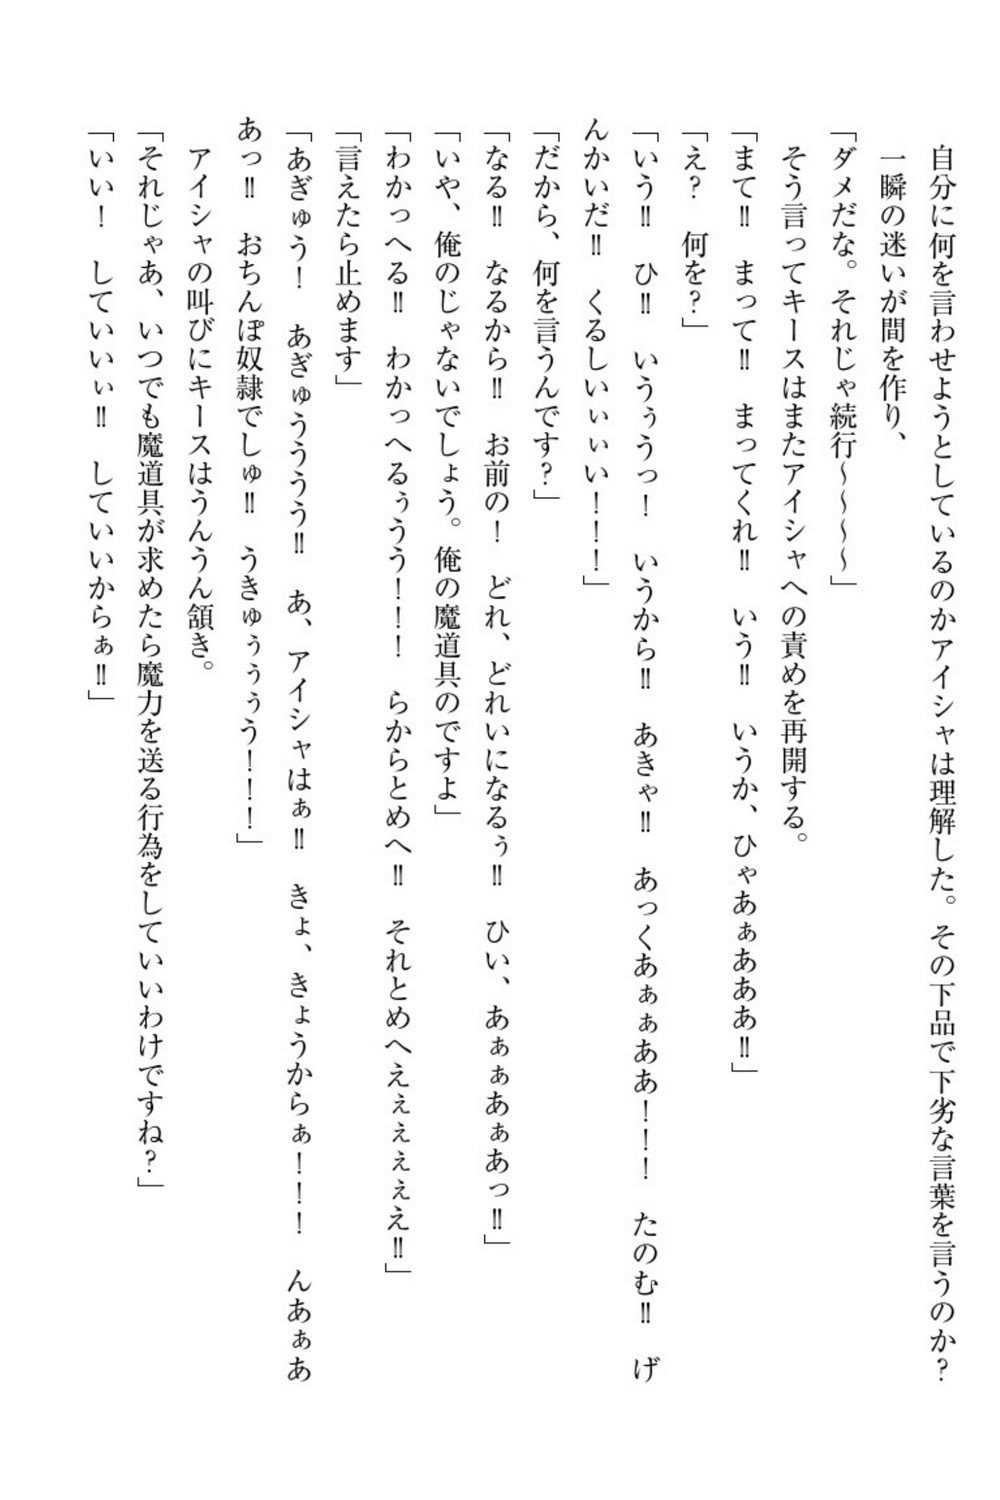 自分に何を言わせようとしているのかアイシャは理解した。その下品で下劣な言葉を言うのか？
一瞬の迷いが間を作り、
「ダメだな。それじゃ続行～～～～」
そう言ってキースはまたアイシャへの責めを再開する。
「まて‼　まって‼　まってくれ‼　いう‼　いうか、ひゃあぁああ‼」
「え？　何を？」
「いう‼　ひ‼　いうぅうっ！　いうから‼　あきゃ‼　あっくあぁぁああ！！！　たのむ‼　げ
んかいだ‼　くるしいぃぃい！！！」
「だから、何を言うんです？」
「なる‼　なるから‼　お前の！　どれ、どれいになるぅ‼　ひい、あぁぁあぁあっ‼」
「いや、俺のじゃないでしょう。俺の魔道具のですよ」
「わかっへる‼　わかっへるぅうう！！！　らからとめへ‼　それとめへえぇぇぇぇえ‼」
「言えたら止めます」
「あぎゅう！　あぎゅうううう‼　あ、アイシャはぁ‼　きょ、きょうからぁ！！！　んあぁあ
あっ‼　おちんぽ奴隷でしゅ‼　うきゅぅぅぅう！！！」
アイシャの叫びにキースはうんうん頷き。
「それじゃあ、いつでも魔道具が求めたら魔力を送る行為をしていいわけですね？」
「いい！　していいぃ‼　していいからぁ‼」